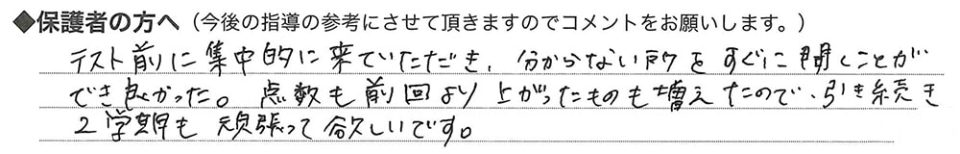 ◆保護者の方へ（今後の指導の参考にさせて頂きますのでコメントをお願いします。）
テスト前に集中的に来ていただき、分からない所をすぐに聞くことが
でき良かった。点数も前回より上がったものも増えたので、引き続き
2学期も頑張って欲しいです。